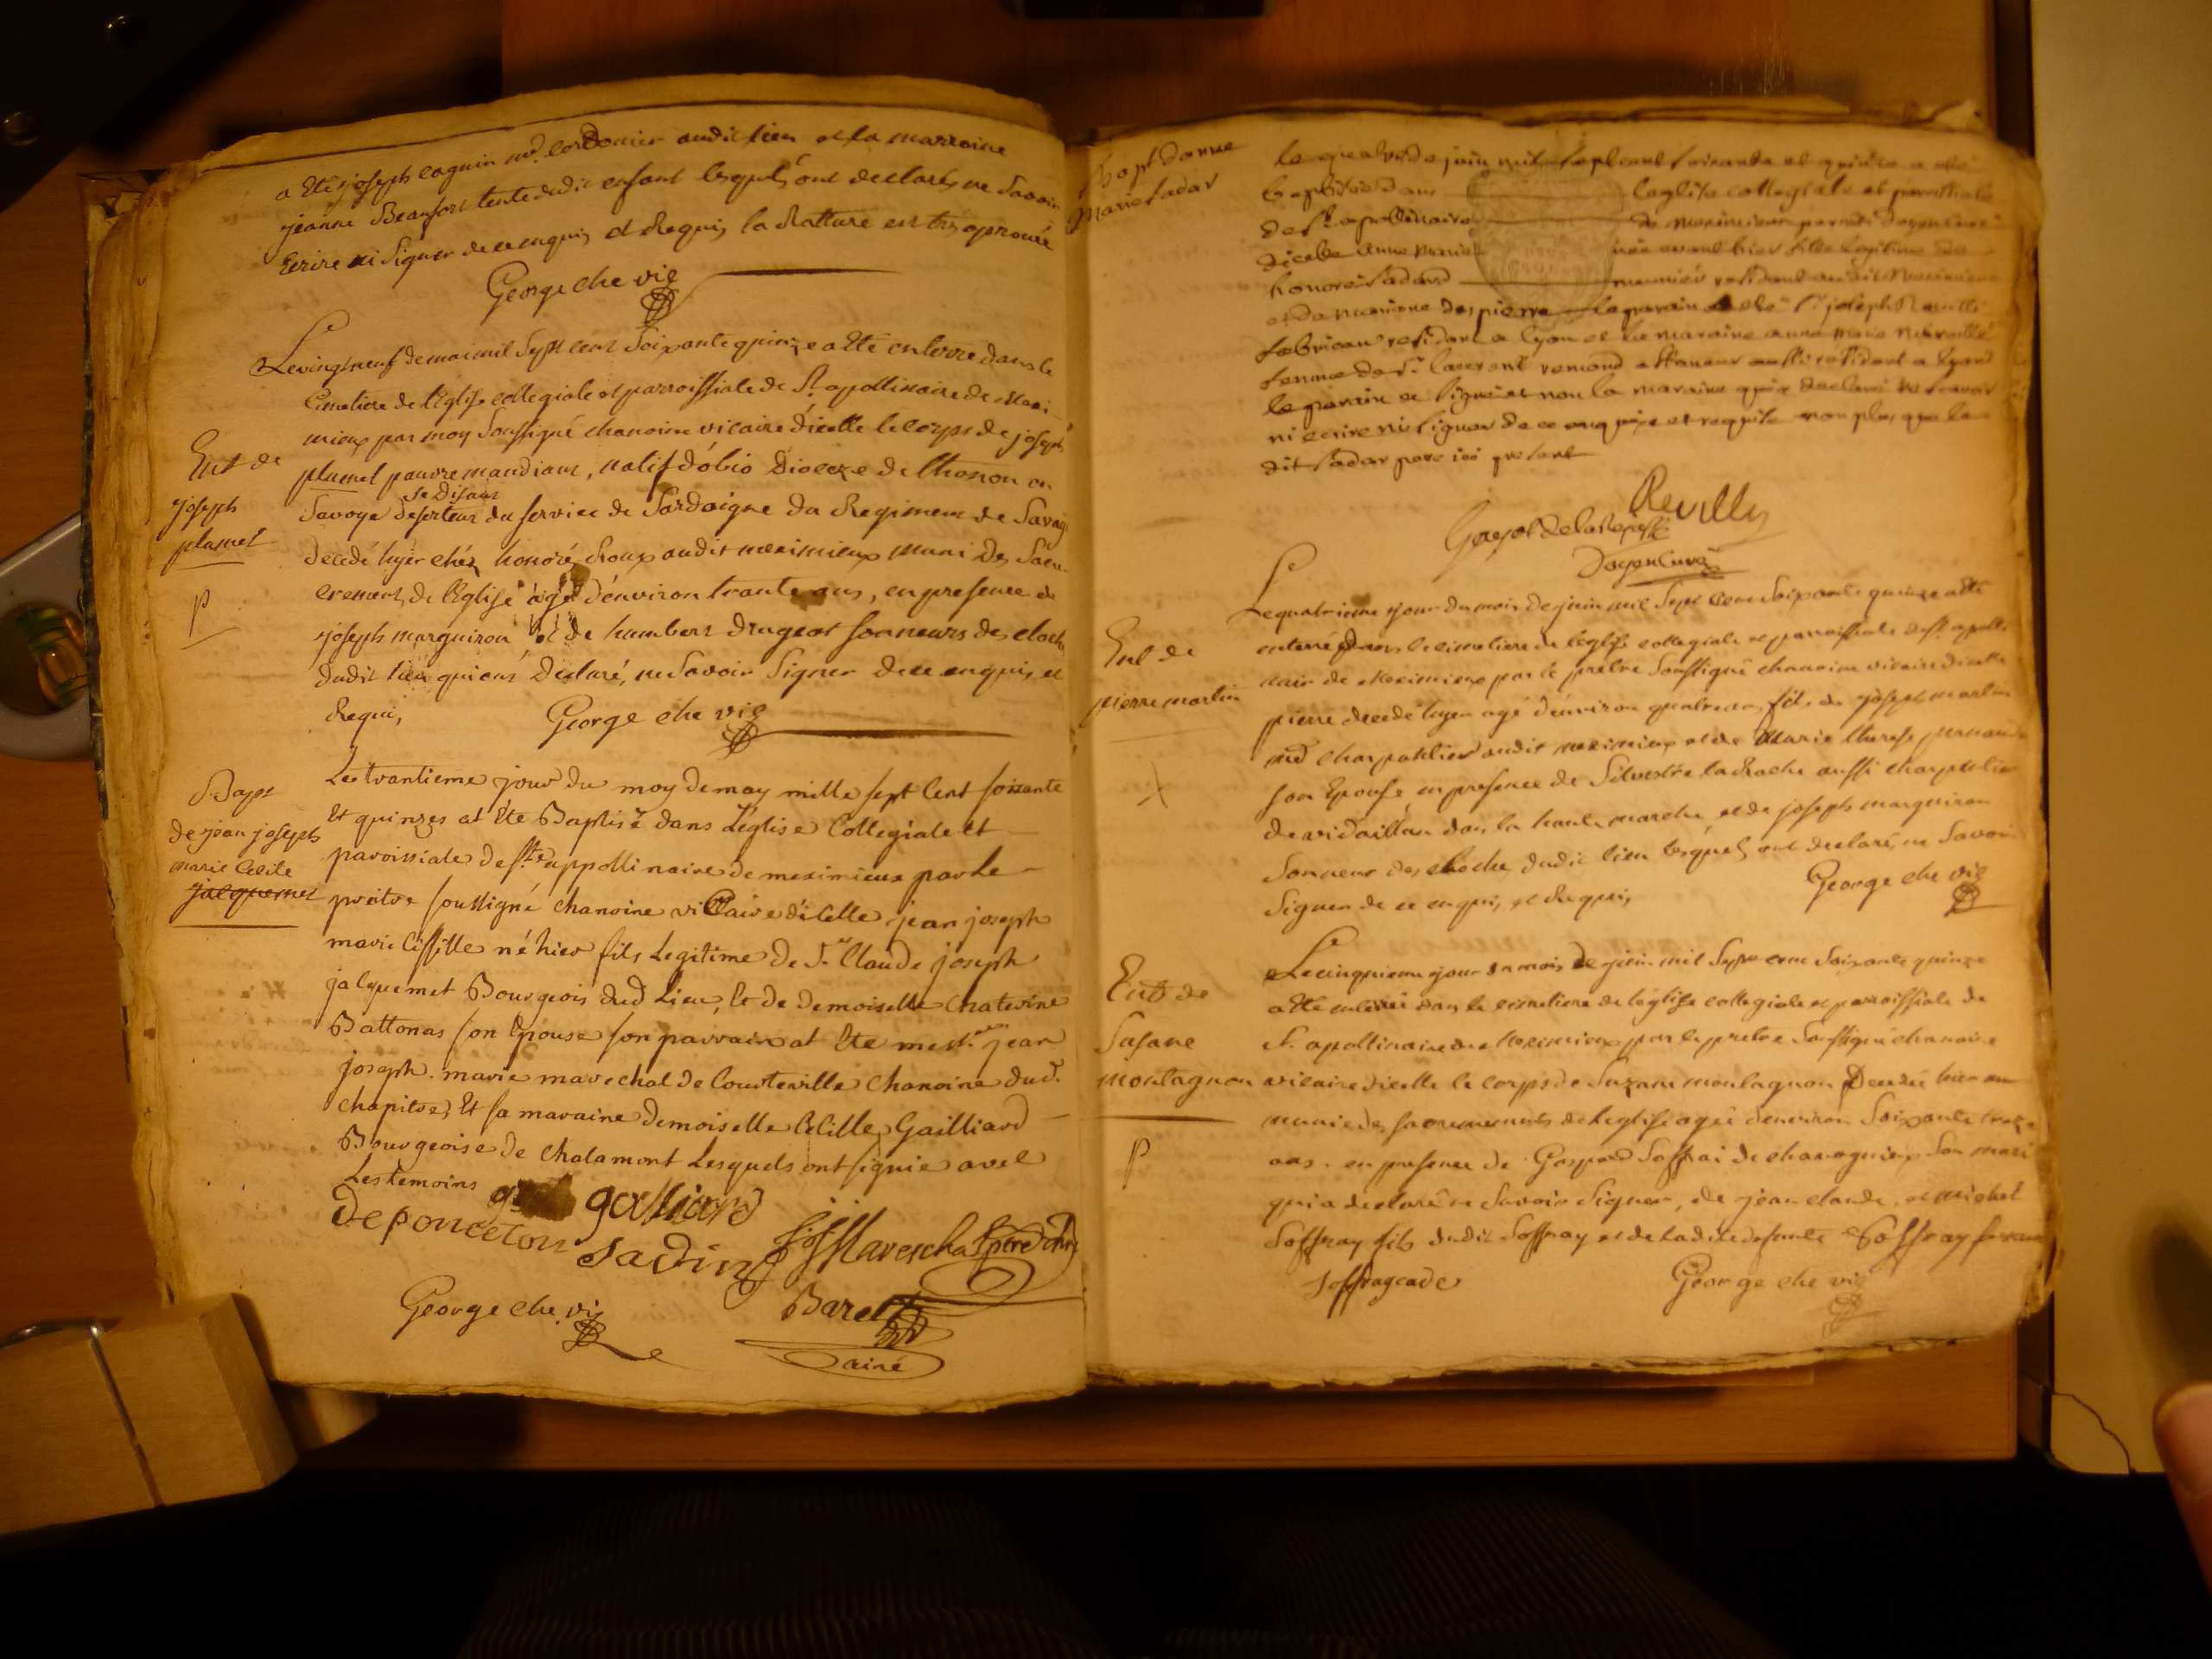 a Eté joseph coquin md. cordonier audit lieu et la marraine
jeanne Beaufort tente dudit enfant lesquels ont declarés ne savoir
Ecrire ni signer de ce enquis et Requis la Ratture est très aprouée
George che vic
Ent de
joseph
plumet
P
Le vingt neuf de mai mil sept cent soixante quinze a Eté enterré dans le
Cimetiere de l'Eglise collegiale et parroissiale de St. apollinaire de Mexi-
mieux par moy soussigné chanoine vicaire d'icelle le corps de joseph
plumet pauvre mandiant, natif d'obio Dioceze de thonon en
se disant
Savoye deserteur du service de Sardaigne du Regiment de Savoye
decedé hyer chéz honoré Roux audit meximieux muni des Sacre-
crements de l'Eglise agé d'environ trante ans, en presence de
joseph marguiron et de humbert drugeat sonneurs des cloches
dudit lieu qui ont declaré, ne Savoir Signer de ce enquis et
Requis,
George che vic
Bapt
de jean joseph
marie Cecile
jacquemet
Le trantieme jour du moy de may mille sept cent soixante
Et quinzes at Eté Baptisé dans L'eglise Collegiale Et
paroissiale de ste appollinaire de meximieux par Le
preitre soussigné Chanoine viCaire d'icelle jean joseph
marie Cissille né hier fils Legitime de Sr. Claude joseph
jacquemet Bourgeois dud Lieu, Et de demoiselle Chaterine
Battonas son Epouse son parrain at Eté messr. jean
joseph. marie marechal de Courteville Chanoine dud.
chapitre, Et sa maraine demoiselle Cecille Gailliard
Bourgeoise de Chalamont Lesquels ont signié avec
Les temoins galliard
deponceton sadin jj Mareschal
George che vic Baret
ainé
Bapt danne
Marie sadar
le quatre de juin mil sept cent soixante et quinze a été
baptisée dans l'eglise collegiale et paroissiale
de st. apollinaire de meximieux par moi doyen curé
d'icelle anne marie née avant hier fille legitime de
honoré sadard meunier residant audit meximieux
et de marianne despierre le parain a été sr. joseph Revilli
fabrican residant a lyon et la maraine anne marie
femme de sr. laurent remond aussi residant a lyon
le parrin a signé et non la maraine qui a declaré ne savoir
ni ecrire ni signer de ce enquise et requise non plus que le
dit sadar pere ici present
Revilly
Goyot de la
doyen curé
Ent de
pierre martin
X
Le quatrieme jour du mois de juin mil sept cent soixante quinze a été
enterré dans le cimetiere de l'eglise collegiale et parroissiale de st apolli-
naire de Meximieux par le prêtre soussigné chanoine vicaire d'icelle
pierre decedé hyer agé d'environ quatre ans, fils de joseph martin
md charpantier audit meximieux et de Marie therese
son Epouse, en presence de Silvestre la Roche aussi charpentier
de dans la haute marche, et de joseph marguiron
Sonneur des cloches dudit lieu lesquels ont declaré, ne Savoir
Signer de ce enquis, et Requis,
George che vic
Ent de
Susane
montagnon
P
Le cinquieme jour du mois de juin mil sept cent soixante quinze
a été enterrée dans le cimetiere de l'eglise collegiale et parroissiale de
St. apollinaire de Meximieux par le prêtre soussigné chanoine
vicaire d'icelle le corps de Suzane montagnon Decedée hier
munie des sacrements de l'eglise agée d'environ soixante treze
ans. en presence de Gaspard Soffrai de charagnieux son mari
qui a declaré ne savoir signer, de jean claude, et michel
Soffray fils dudit Soffray et de ladite defunte Soffray
soffray cade
George che vic